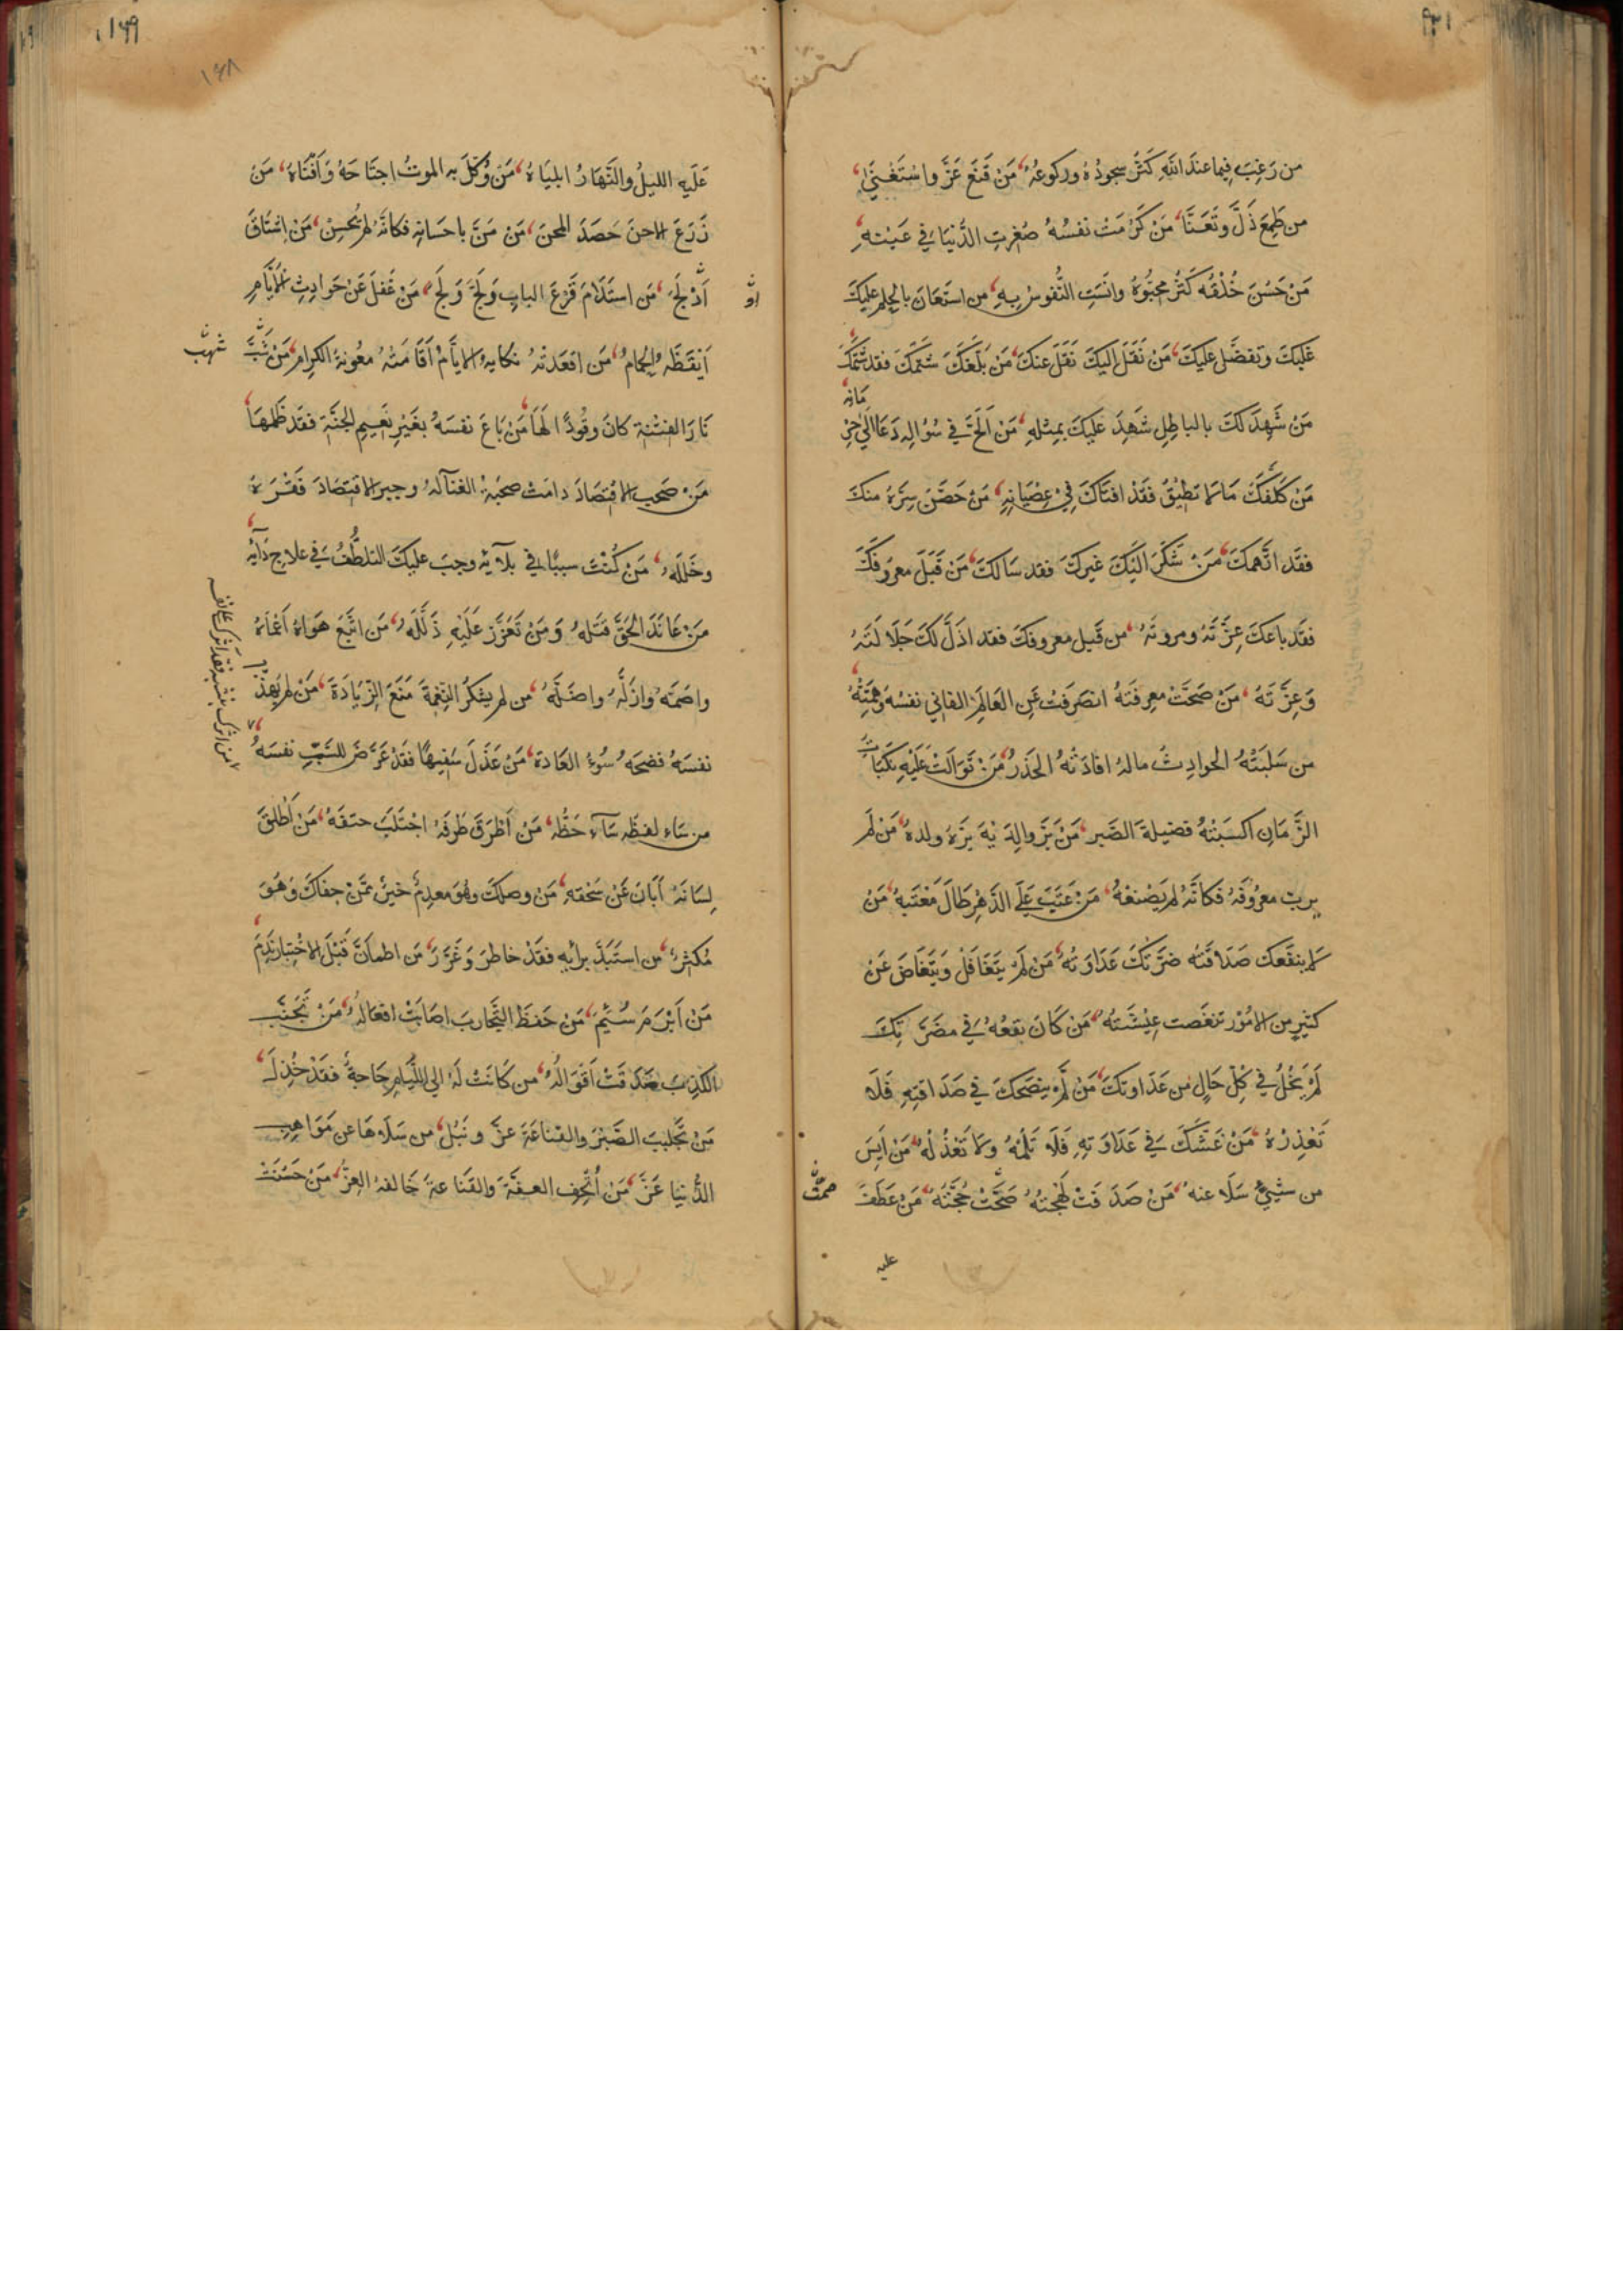 من رَغِبَ فِيما عندَ اللهِ كَثُرَ سجودُهُ وركوعُهُ، مَنْ قَنَعَ عَزَّ واسْتَغْنیٰ،
من طَمِعَ ذَلَّ وتَعَنَّا، مَنْ كَرُمَتْ نفسُهُ صَغُرتِ الدُّنيَا فِي عَيْنهِ،
مَنْ حَسُنَ خُلْقُه كَثُرَ مُحِبُّوهُ وانَسَتِ النُّفوسُ بِهِ، من استَعَانَ بالحِلمِ عليكَ
غَلبَكَ وتفضَّل عليكَ، مَنْ نَقَلَ اليكَ نَقَلَ عنكَ، مَنْ بَلَّغَكَ شتمَكَ فقد شَتَمَكَ،
مَنْ شَهِدَ لكَ بالباطِلِ شَهِدَ عليكَ بمِثلهِ، مَنْ اَلَحَّ في سُوالِهِ دَعَا اِلي حِرْ
مَانِهِ،
مَنْ كَلَّفَكَ مَا لا تطيْقُ فقَدْ افتَاكَ فِيْ عِصْيَانِهِ، مَنْ حَصَّنَ سِرَّهُ منكَ
فقَد اتَّهمَكَ، مَنْ شَكَرَ اليْكَ غيركَ فقد سَالكَ، مَنْ قَبَلَ معرُوفَكَ
فقَد باعَكَ عِزَّتَهُ ومروتَهُ، من قَبِل معروفكَ فقد اذَلَّ لكَ جَلَالَتَهُ
وَعِزَّتَهُ، مَنْ صَحَّتْ معرِفَتَهُ انصَرفتْ عَنِ العَالَمِ الفانِي نفسُهُ وهِمَّتُهُ،
من سَلَبَتْهُ الحوادِثُ مالهُ افادَتْهُ الحَذَرُ، مَنْ تَوَالَتْ عَلَيْهِ نَكَبَاتُ
الزَّمَانِ اكسَبَتْهُ فضيلةَ الصَّبر، مَنْ بَرَّ والِدَيْهَ بَرَّهُ ولدهُ، مَنْ لَم
يربّ معرُوفَهُ فكانَّهُ لم يَصْنعْهُ، مَنْ عَتَبَ عَلَي الدَّهْرِ طَالَ مَعْتَبهُ، مَنْ
لا ينفَعك صَدَاقتُه ضرَّتكَ عَدَاوَتهُ، مَنْ لَمْ يتَغَافَلْ وَيَتَغَاضَ عَنْ
كثيرٍ من الامُوْر تنغّصت عِيْشَتهُ، مَنْ كَانَ نفعُهُ فِي مضَرَّتِكَ
لَمْ يَخْلُ في كُلِّ حَالٍ من عَدَاوتكَ، مَنْ لَمْ ينصَحكَ في صَدَاقتِهِ فَلَا
تَعْذِرْهُ، مَنْ غَشَّكَ فِي عَدَاوَتِهِ فَلَا تَلُمْهُ ولَا تَعْذُلْهُ، مَنْ اَيِسَ
من شيْئٍ سَلَا عنهُ، مَنْ صَدَقَتْ لَهْجتهُ صَحَّتْ حُجَّتُهُ، مَنْ عَطَفَ
عليه
عَلَيهِ الليلُ والنَّهَارُ ابليَاهُ، مَنْ وُكِّلَ به الموتُ اجتَاحَهُ وَاَفْنَاهُ، مَنْ
زَرَعَ الاحنَ حَصَدَ المحنَ، مَنْ مَنَّ باحسَانِه فكانَّهُ لم يُحسِنْ، مَنْ اشتَاقَ
اَدْلَجَ، مَن استَدَامَ قَرْعَ البابِ وَلَجَّ وَلَجَ، مَنْ غَفلَ عَنْ حَوادِثِ الاَيَّامِ
اَيْقَظَهُ الحِمامُ، مَن اقعَدتْهُ نكايةُ الايَّامْ اَقَامَتْهُ معُونةُ الكِرامِ، مَنْ شَبَّ
نَارَ الفِتْنة كانَ وقُودًا لَهَا، مَنْ بَاعَ نفسَهُ بغَيْرِ نَعِيمِ الجنَّةِ فقَد ظَلمهَا،
مَنْ صَحِب الاقتِصَادَ دامَتْ صحبَةُ الغنَآ لهُ وجبرَ الاقتِصَادَ فقْرَهُ
وخَلَلَهُ، مَنْ كُنْتَ سببًا في بلآئِه وجبَ عليكَ التلطُّفُ فِي علاجِ دَآئِه،
مَنْ عَانَدَ الحَقَّ قتَلهُ وَمَنْ تَعَزَّزَ عَلَيْهِ ذَلَّلَهُ، مَن اتَّبَعَ هَوَاهُ اَعْمَاهُ
واصَمَّهُ وازَلَّهُ واضَلَّهُ، من لم يشكُرُ النِّعْمَةَ مَنَعَ الزِّيَادَةَ، مَنْ لم يهذِّبْ
نفسَهُ فضحَهُ سُوْءُ العَادَة، مَنْ عَذَلَ سَفِيهًا فقَدْ عَرَّضَ للسَّبِّ نفسَهُ،
من سَاء لفظهُ سَآءَ حَظُّه، مَنْ اَطْرَقَ طَرفَهُ اجْتَلَبَ حتفَهُ، مَنْ اَطْلقَ
لِسَانَهُ اَبَانَ عَنْ سَخفهِ، مَن وصلكَ وهُوَ معدِمٌ خيرٌ ممَّنْ جفاكَ وَهُوَ
مُكثِرٌ، من استَبَدَّ برأيهِ فقَدْ خاطَرَ وَغَرَّرَ، مَن اطمأنَّ قَبْلَ الاخْتِبارِ نَدِمَ
مَنْ اَبْرَمَ سُئِمَ، مَنْ حَفظَ التَّجَارِبَ اصَابَتْ افعَالهُ، مَنْ تَجَنَّبَ
الكَذِبَ صَدَقَتْ اَقْوَالُهُ، من كَانَتْ لَهُ الي اللِّيَامِ حَاجةٌ فقَدْ خُذِلَ،
مَنْ تَجَلببَ الصَّبْرَ والقنَاعَةَ عزَّ ونَبُلَ، من سَلَاهَا عن مَوَاهِبِ
الدُّنيَا عَزَّ، مَن اُتْحِف العِفَّةَ والقَنَاعةَ حَالفهُ العِزُّ، مَنْ حَسُنَتْ